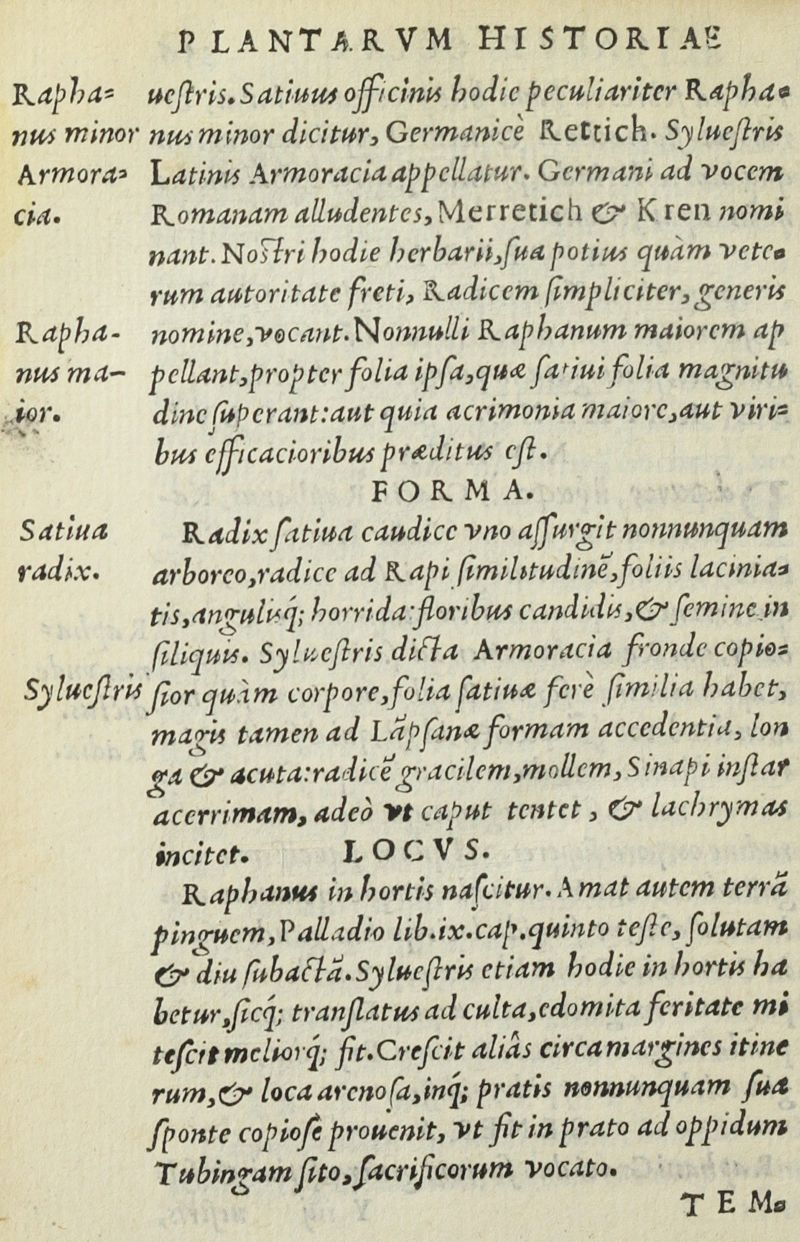 PLANTARVM HISTORIAE
Rapha=
nus minor
Armora=
cia.
Rapha-
nus ma-
ior.
Satiua
radix.
Syluestris
uestris. Satiuus officinis hodie peculiariter Rapha=
nus minor dicitur, Germanicè Rettich. Syluestris
Latinis Armoracia appellatur. Germani ad vocem
Romanam alludentes, Merretich & Kren nomi
nant. Nostri hodie herbarii, sua potius quàm vete=
rum autoritate freti, Radicem simpliciter, generis
nomine, vocant. Nonnulli Raphanum maiorem ap
pellant, propter folia ipsa, quæ satiui folia magnitu
dine superant: aut quia acrimonia maiore, aut viri=
bus efficacioribus præditus est.
FORMA.
Radix satiua caudice vno assurgit nonnunquam
arboreo, radice ad Rapi similitudinē, foliis lacinia=
tis, angulisq́; horrida: floribus candidis, & semine in
siliquis. Syluestris dicta Armoracia fronde copio=
sior quàm corpore, folia satiuæ ferè similia habet,
magis tamen ad Lāpsanæ formam accedentia, lon
ga & acuta: radicē gracilem, mollem, Sinapi instar
acerrimam, adeò vt caput tentet, & lachrymas
incitet. LOCVS.
Raphanus in hortis nascitur. Amat autem terrā
pinguem, Palladio lib.ix.cap.quinto teste, solutam
& diu subactā. Syluestris etiam hodie in hortis ha
betur, sicq́; translatus ad culta, edomita feritate mi
tescit meliorq́; fit. Crescit aliâs circa margines itine
rum, & loca arenosa, inq́; pratis nonnunquam sua
sponte copiosè prouenit, vt fit in prato ad oppidum
Tubingam sito, sacrificorum vocato.
TEM=